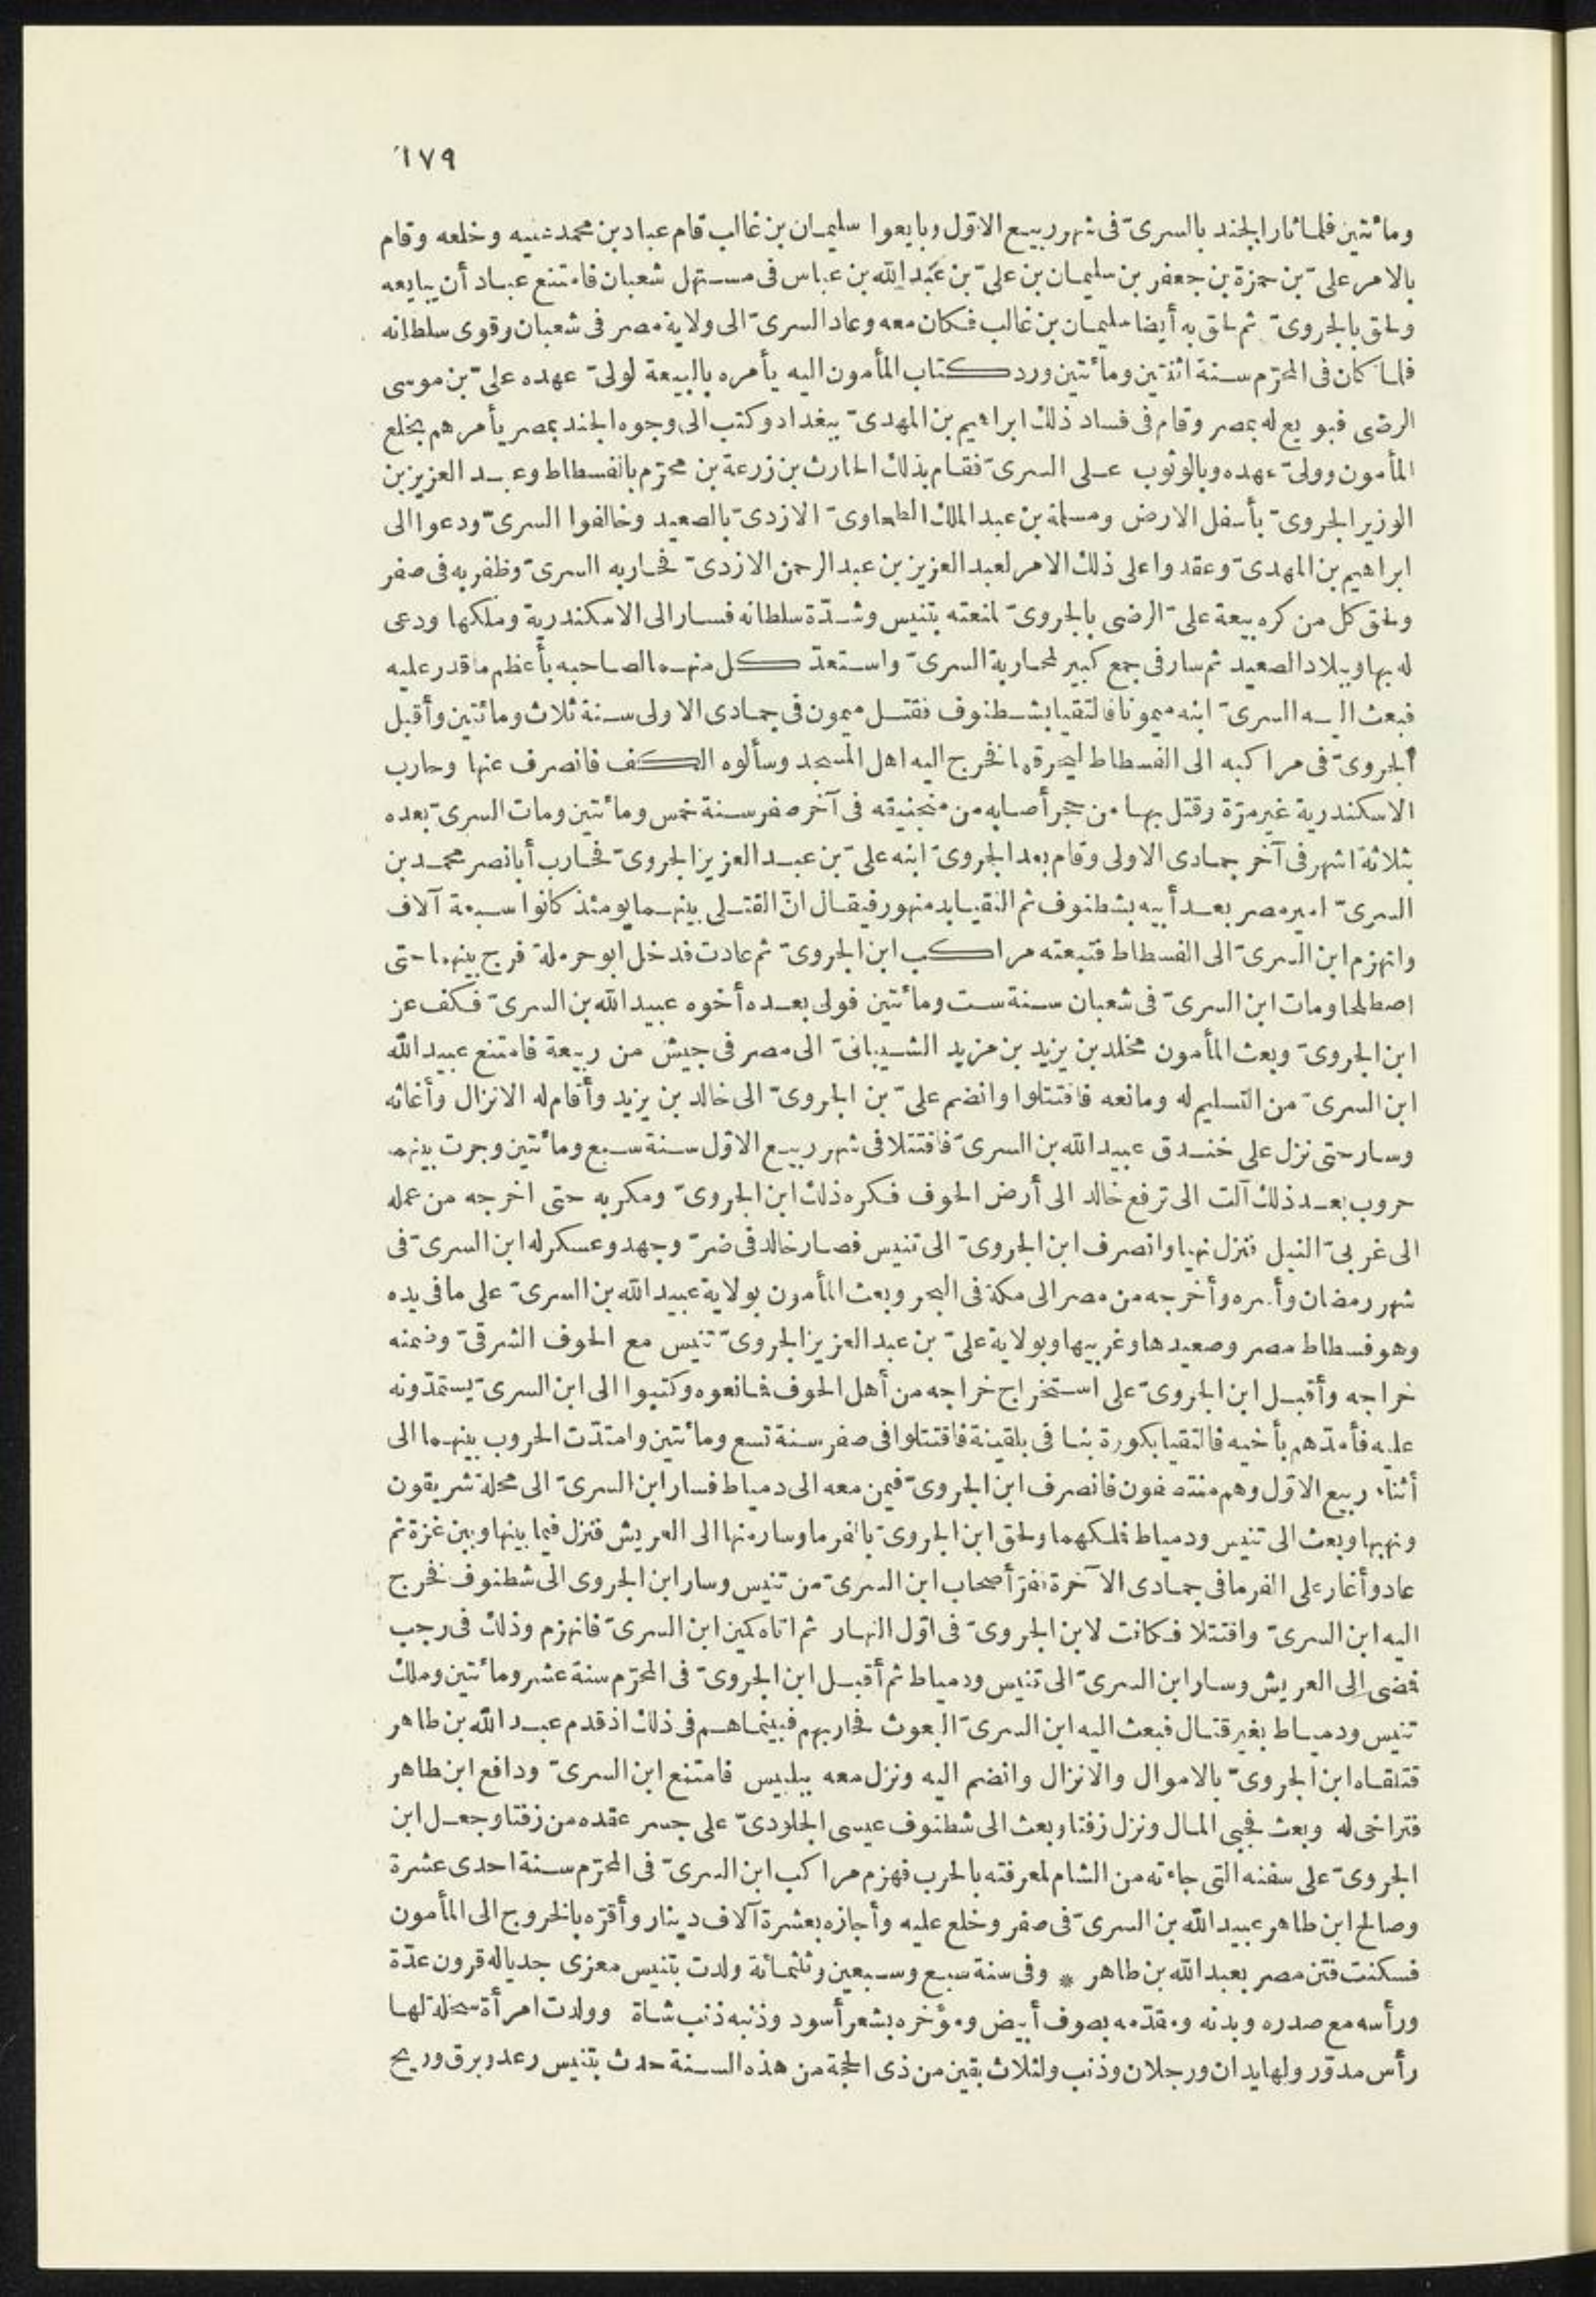 ١٧٩
ومائتين فلما ثار الجند بالسرىّ فى شهر ربيع الاوّل وبايعوا سليمان بن غالب قام عباد بن محمد عليه وخلعه وقام
بالامر علىّ بن حمزة بن جعفر بن سليمان بن علىّ بن عبد الله بن عباس فى مستهل شعبان فامتنع عباد أن يبايعه
ولحق بالجروىّ ثم لحق به أيضا سليمان بن غالب فكان معه وعاد السرىّ الى ولاية مصر فى شعبان وقوى سلطانه
فلما كان فى المحرّم سنة اثنتين ومائتين ورد كتاب المأمون اليه يأمره بالبيعة لولىّ عهده علىّ بن موسى
الرضى فبويع له بمصر وقام فى فساد ذلك ابراهيم بن المهدىّ ببغداد وكتب الى وجوه الجند بمصر يأمرهم بخلع
المأمون وولىّ عهده وبالوثوب على السرىّ فقام بذلك الحارث بن زرعة بن محرّم بالفسطاط وعبد العزيز بن
الوزير الجروىّ بأسفل الارض ومسلمة بن عبد الملك الطحاوىّ الازدىّ بالصعيد وخالفوا السرىّ ودعوا الى
ابراهيم بن المهدىّ وعقدوا على ذلك الامر لعبد العزيز بن عبد الرحمن الازدىّ فحاربه السرىّ وظفر به فى صفر
ولحق كل من كره بيعة علىّ الرضى بالجروىّ لمنعته بتنيس وشدّة سلطانه فسار الى الاسكندرية وملكها ودعى
له بها وببلاد الصعيد ثم سار فى جمع كبير لمحاربة السرىّ واستعدّ كل منهما لصاحبه بأعظم ما قدر عليه
فبعث اليه السرىّ ابنه ميمونا فالتقيا بشطنوف فقتل ميمون فى جمادى الاولى سنة ثلاث ومائتين وأقبل
الجروىّ فى مراكبه الى الفسطاط ليحرقها فخرج اليه اهل المسجد وسألوه الكف فانصرف عنها وحارب
الاسكندرية غير مرّة وقتل بها من حجر أصابه من منجنيقه فى آخر صفر سنة خمس ومائتين ومات السرىّ بعده
بثلاثة اشهر فى آخر جمادى الاولى وقام بعد الجروىّ ابنه علىّ بن عبد العزيز الجروىّ فحارب أبا نصر محمد بن
السرىّ امير مصر بعد أبيه بشطنوف ثم التقيا بدمنهور فيقال انّ القتلى بينهما يومئذ كانوا سبعة آلاف
وانهزم ابن السرىّ الى الفسطاط فتبعته مراكب ابن الجروىّ ثم عادت فدخل ابو حرملة فرج بينهما حتى
اصطلحا ومات ابن السرىّ فى شعبان سنة ست ومائتين فولى بعده أخوه عبيد الله بن السرىّ فكف عن
ابن الجروىّ وبعث المأمون مخلد بن يزيد بن مزيد الشيبانىّ الى مصر فى جيش من ربيعة فامتنع عبيد الله
ابن السرىّ من التسليم له ومانعه فاقتتلوا وانضم علىّ بن الجروىّ الى خالد بن يزيد وأقام له الانزال وأغاثه
وسار حتى نزل على خندق عبيد الله بن السرىّ فاقتتلا فى شهر ربيع الاوّل سنة سبع ومائتين وجرت بينهما
حروب بعد ذلك آلت الى ترفع خالد الى أرض الحوف فكره ذلك ابن الجروىّ ومكر به حتى اخرجه من عمله
الى غربىّ النيل فنزل نهيا وانصرف ابن الجروىّ الى تنيس فصار خالد فى ضرّ وجهد وعسكر له ابن السرىّ فى
شهر رمضان وأسره وأخرجه من مصر الى مكة فى البحر وبعث المأمون بولاية عبيد الله بن السرىّ على ما فى يده
وهو فسطاط مصر وصعيدها وغربيها وبولاية علىّ بن عبد العزيز الجروىّ تنيس مع الحوف الشرقىّ وضمنه
خراجه وأقبل ابن الجروىّ على استخراج خراجه من أهل الحوف فمانعوه وكتبوا الى ابن السرىّ يستمدّونه
عليه فأمدّهم بأخيه فالتقيا بكورة بنا فى بلقينة فاقتتلوا فى صفر سنة تسع ومائتين وامتدّت الحروب بينهما الى
أثناء ربيع الاوّل وهم منتصفون فانصرف ابن الجروىّ فيمن معه الى دمياط فسار ابن السرىّ الى محلة شريقون
ونهبها وبعث الى تنيس ودمياط فملكهما ولحق ابن الجروىّ بالفرما وسار منها الى العريش فنزل فيما بينها وبين غزة ثم
عاد وأغار على الفرما فى جمادى الآخرة ففرّ أصحاب ابن السرىّ من تنيس وسار ابن الجروى الى شطنوف فخرج
اليه ابن السرىّ واقتتلا فكانت لابن الجروىّ فى اوّل النهار ثم اتاه كمين ابن السرىّ فانهزم وذلك فى رجب
فمضى الى العريش وسار ابن السرىّ الى تنيس ودمياط ثم أقبل ابن الجروىّ فى المحرّم سنة عشر ومائتين وملك
تنيس ودمياط بغير قتال فبعث اليه ابن السرىّ البعوث فحاربهم فبينما هم فى ذلك اذ قدم عبد الله بن طاهر
فتلقاه ابن الجروىّ بالاموال والانزال وانضم اليه ونزل معه ببلبيس فامتنع ابن السرىّ ودافع ابن طاهر
فتراخى له وبعث فجبى المال ونزل زفتا وبعث الى شطنوف عيسى الجلودىّ على جسر عقده من زفتا وجعل ابن
الجروىّ على سفنه التى جاءته من الشام لمعرفته بالحرب فهزم مراكب ابن السرىّ فى المحرّم سنة احدى عشرة
وصالح ابن طاهر عبيد الله بن السرىّ فى صفر وخلع عليه وأجازه بعشرة آلاف دينار وأقرّه بالخروج الى المأمون
فسكنت فتن مصر بعبد الله بن طاهر * وفى سنة سبع وسبعين وثلثمائة ولدت بتنيس معزى جديا له قرون عدّة
ورأسه مع صدره وبدنه ومقدّمه بصوف أبيض ومؤخره بشعر أسود وذنبه ذنب شاة وولدت امرأة سخلة لها
رأس مدوّر ولها يدان ورجلان وذنب ولثلاث بقين من ذى الحجة من هذه السنة حدث بتنيس رعد وبرق وريح